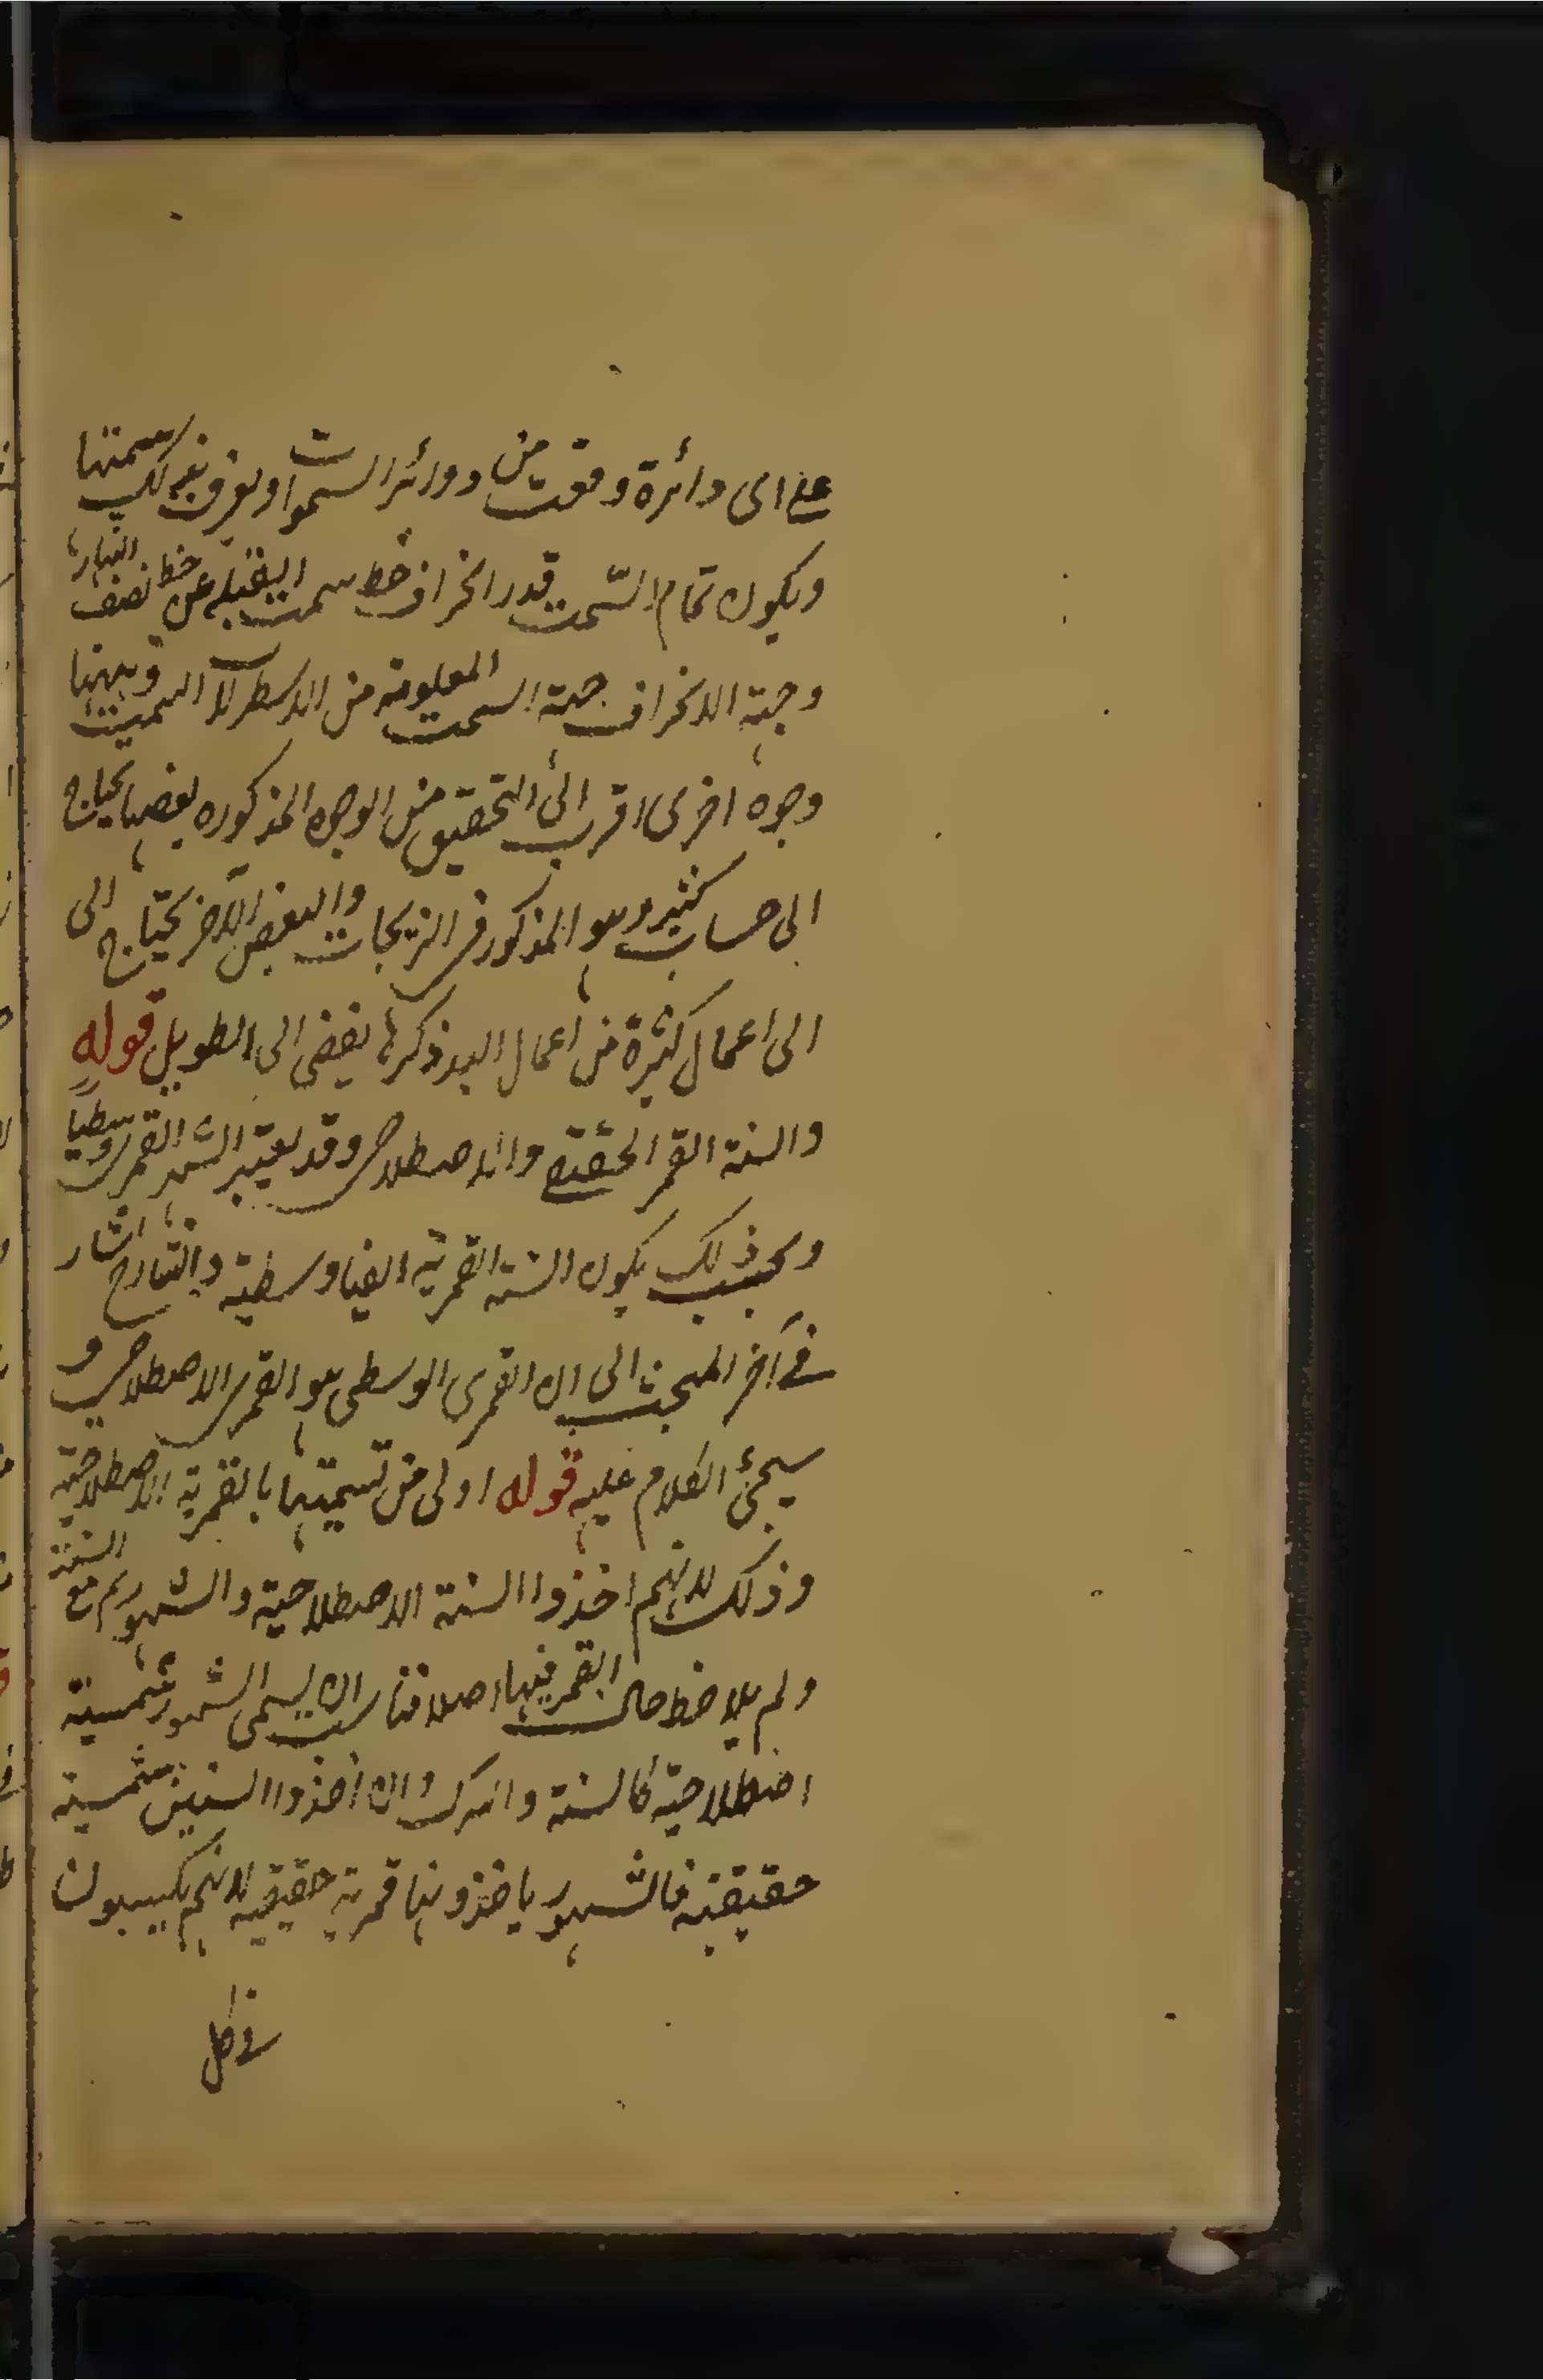 على اى دائرة وقعت من دوائر السموات ويعرف بذلك سمتها
ويكون تمام السّمت قدر انحراف خط سمت القبلة عن خط نصف النهار
وجهة الانحراف جهة السمت المعلومة من الاسطرلاب
وجوه اخرى اقرب الى التحقيق من الوجوه المذكوره بعضها يحتاج
الى حساب كثير وهو المذكور فى الزيجات والبعض الآخر يحتاج الى
الى اعمال كثيرة من اعمال اليد ذكرها يفضى الى الطويل قوله
والسنة القمر الحقيقي والاصطلاحى وقد يعتبر الشهر القمرى وسطيا
وبحسب ذلك يكون السنة القمرية ايضا وسطية والشارح اشار
فى آخر المبحث الى ان القمرى الوسطى هو القمرى الاصطلاحى و
سيجئ الكلام عليه قوله اولى من تسميتها بالقمرية الاصطلاحية
وذلك لانهم اخذوا السنة الاصطلاحية والشهور مع السنة
ولم يلاحظ حال القمر فيها اصلا فناسب ان يسمى الشهور شمسية
اصطلاحية كالسنة والترك وان اخذوا السنين شمسية
حقيقية فالشهور ياخذونها قمرية حقيقية لانهم يكبسون
فى كل